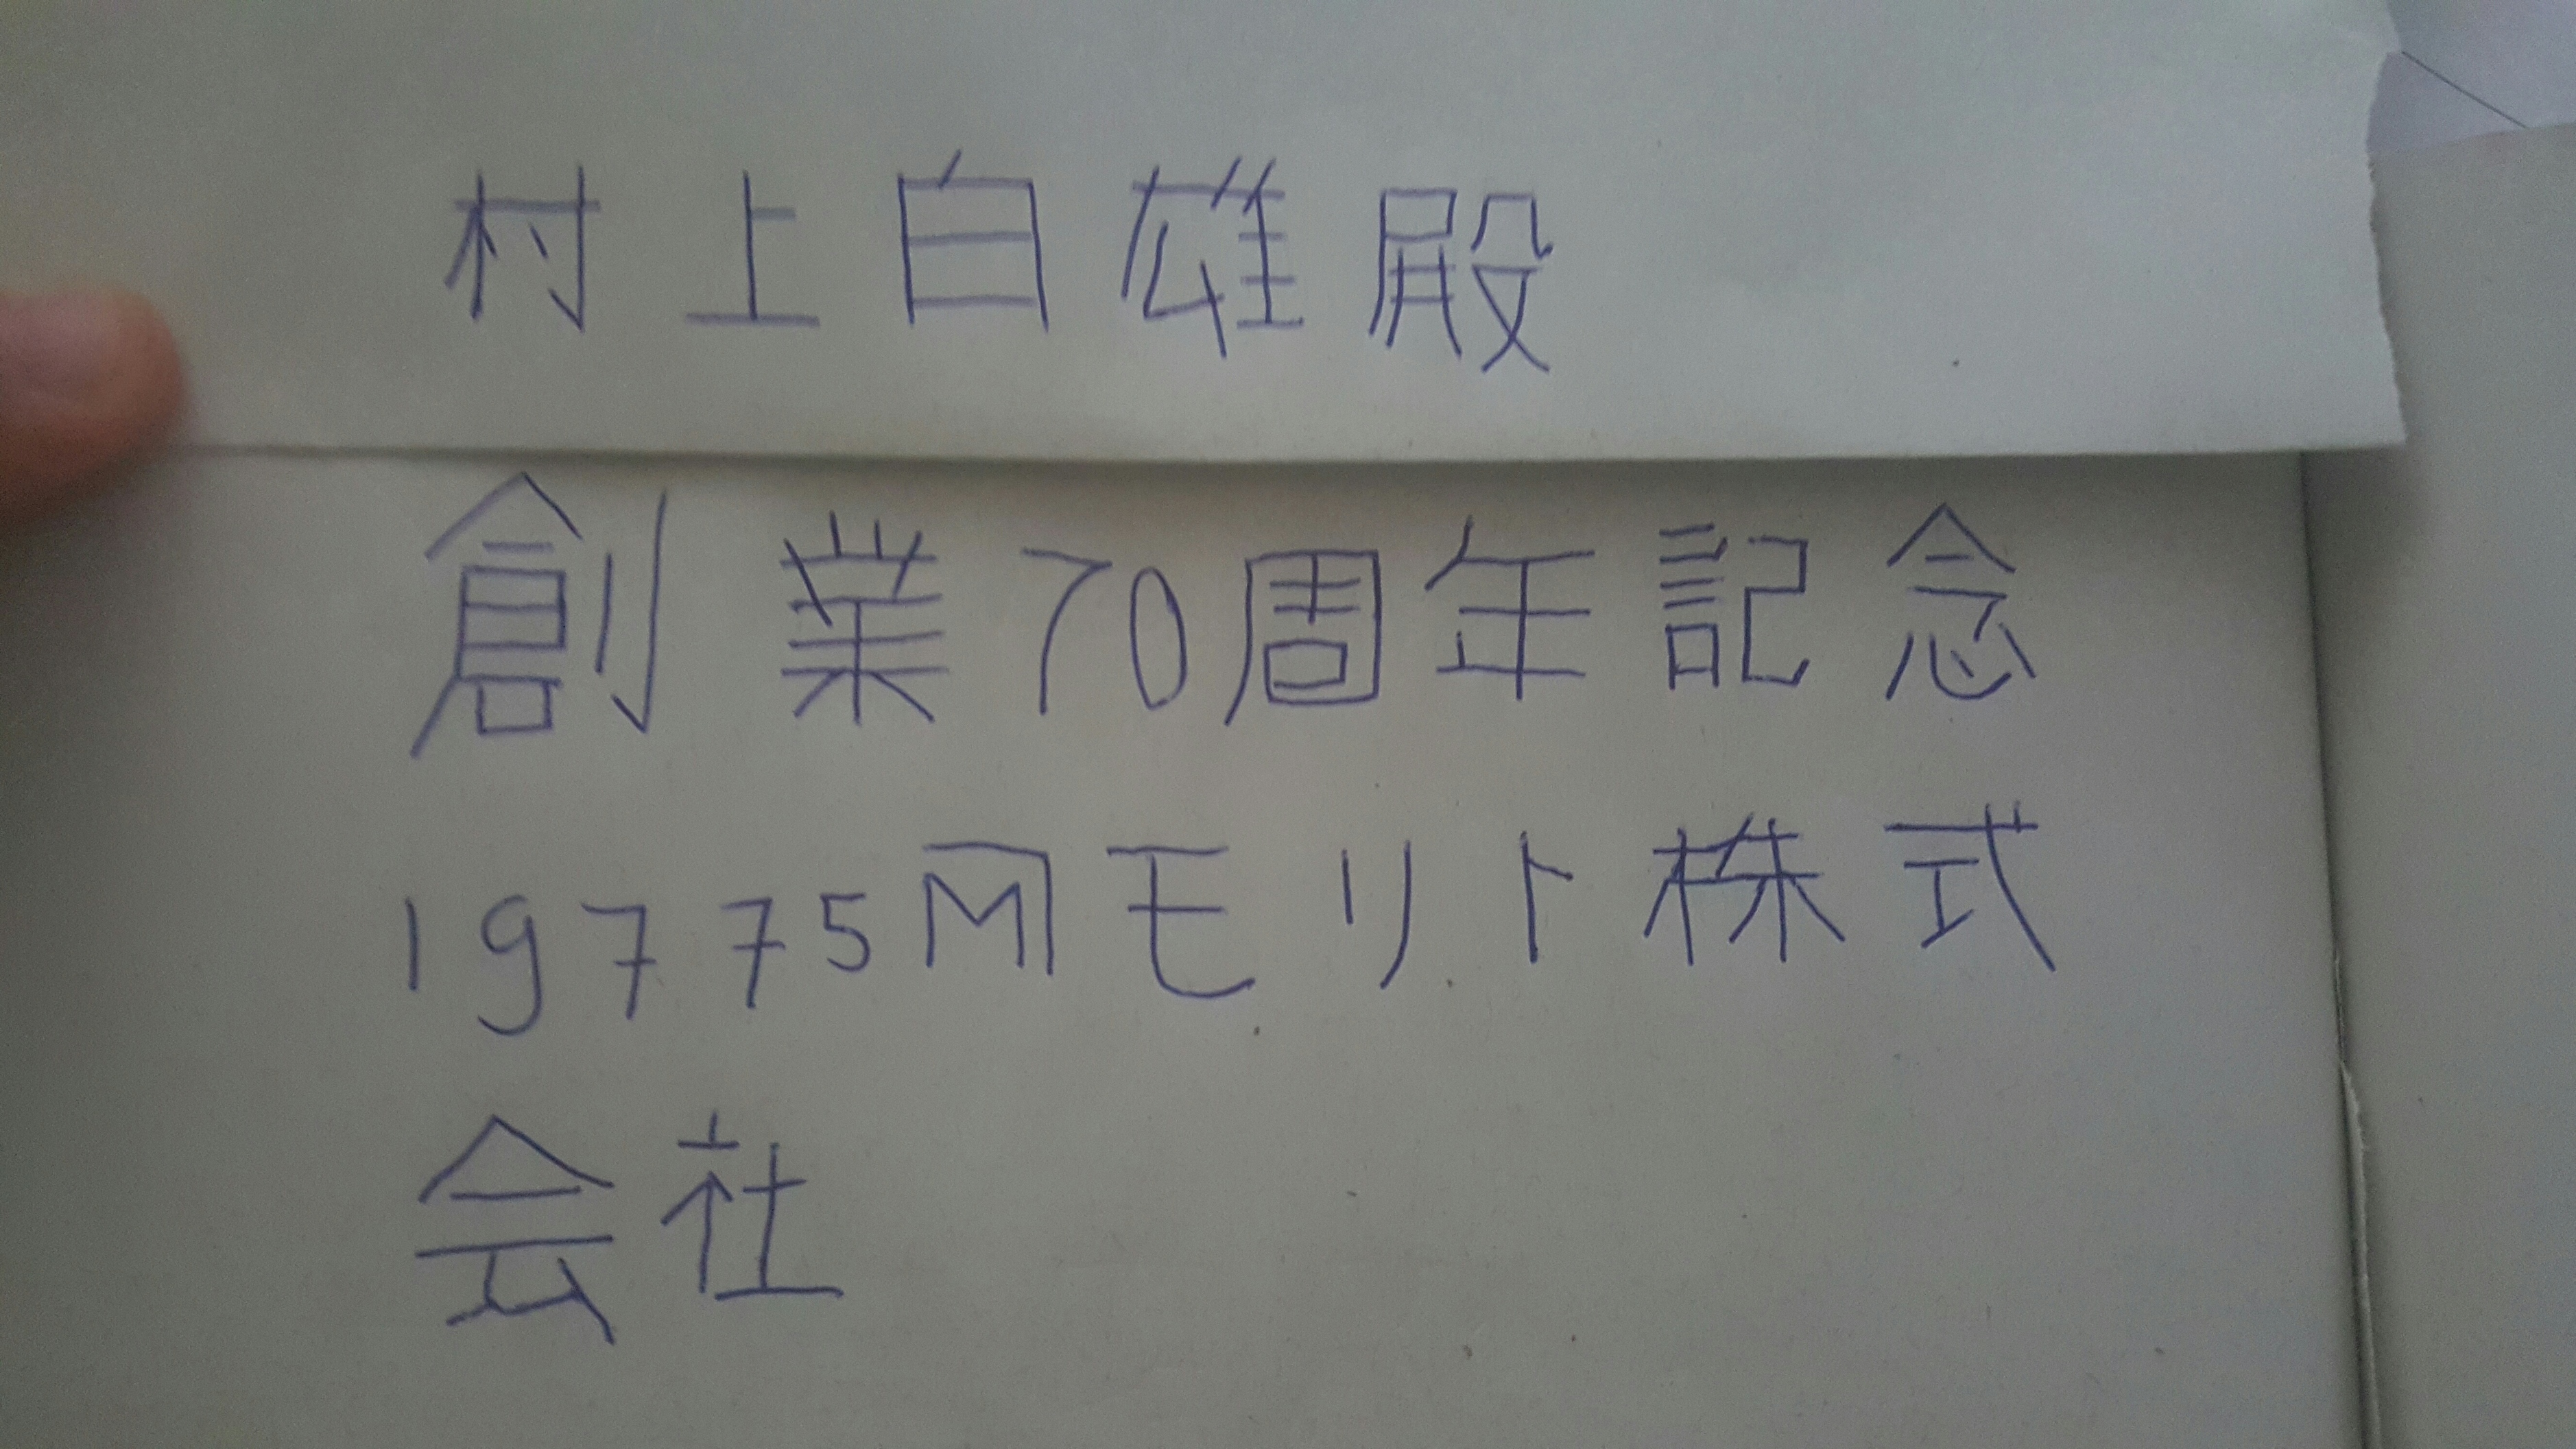 村上白雄殿
創業70周年記念
19775月モリト株式
会社